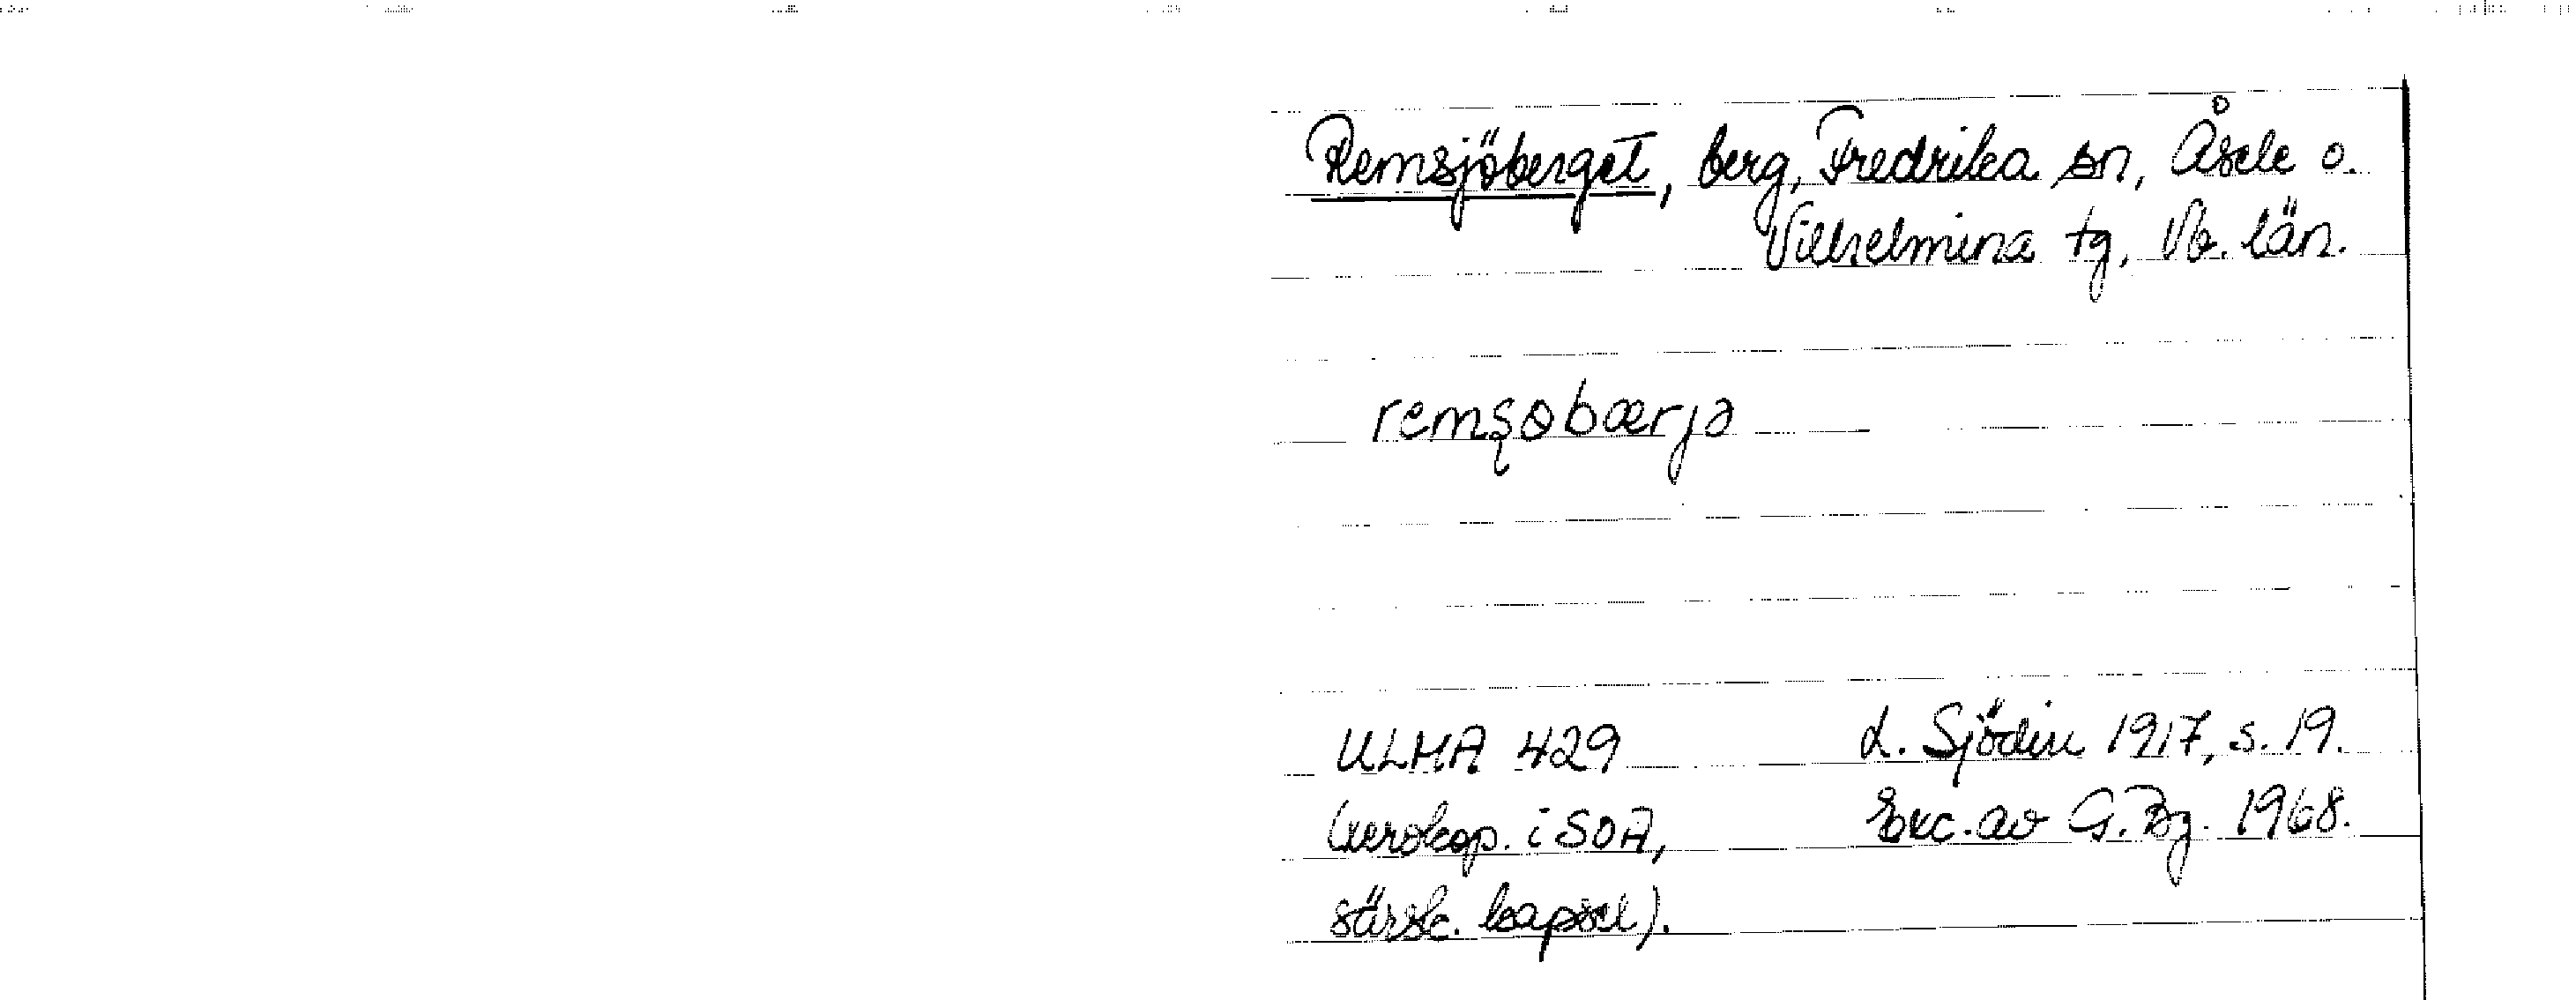 Remsjöberget, berg, Fredrika sn, Åsele o.
Vilhelmina tg, Vb. län.
remşøbærjə
ULMA 429
L. Sjödin 1917, s. 19.
(xerokop. i SOA,
Exc. av G. Bg. 1968.
särsk. kapsel).